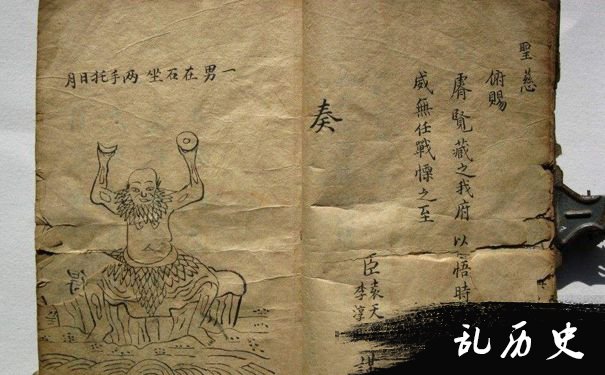 聖慈
俯賜
膺覽藏之我府以悟時
威無任戰慄之至
奏
臣袁天
李淳
一男在石坐两手托日月
乱历史